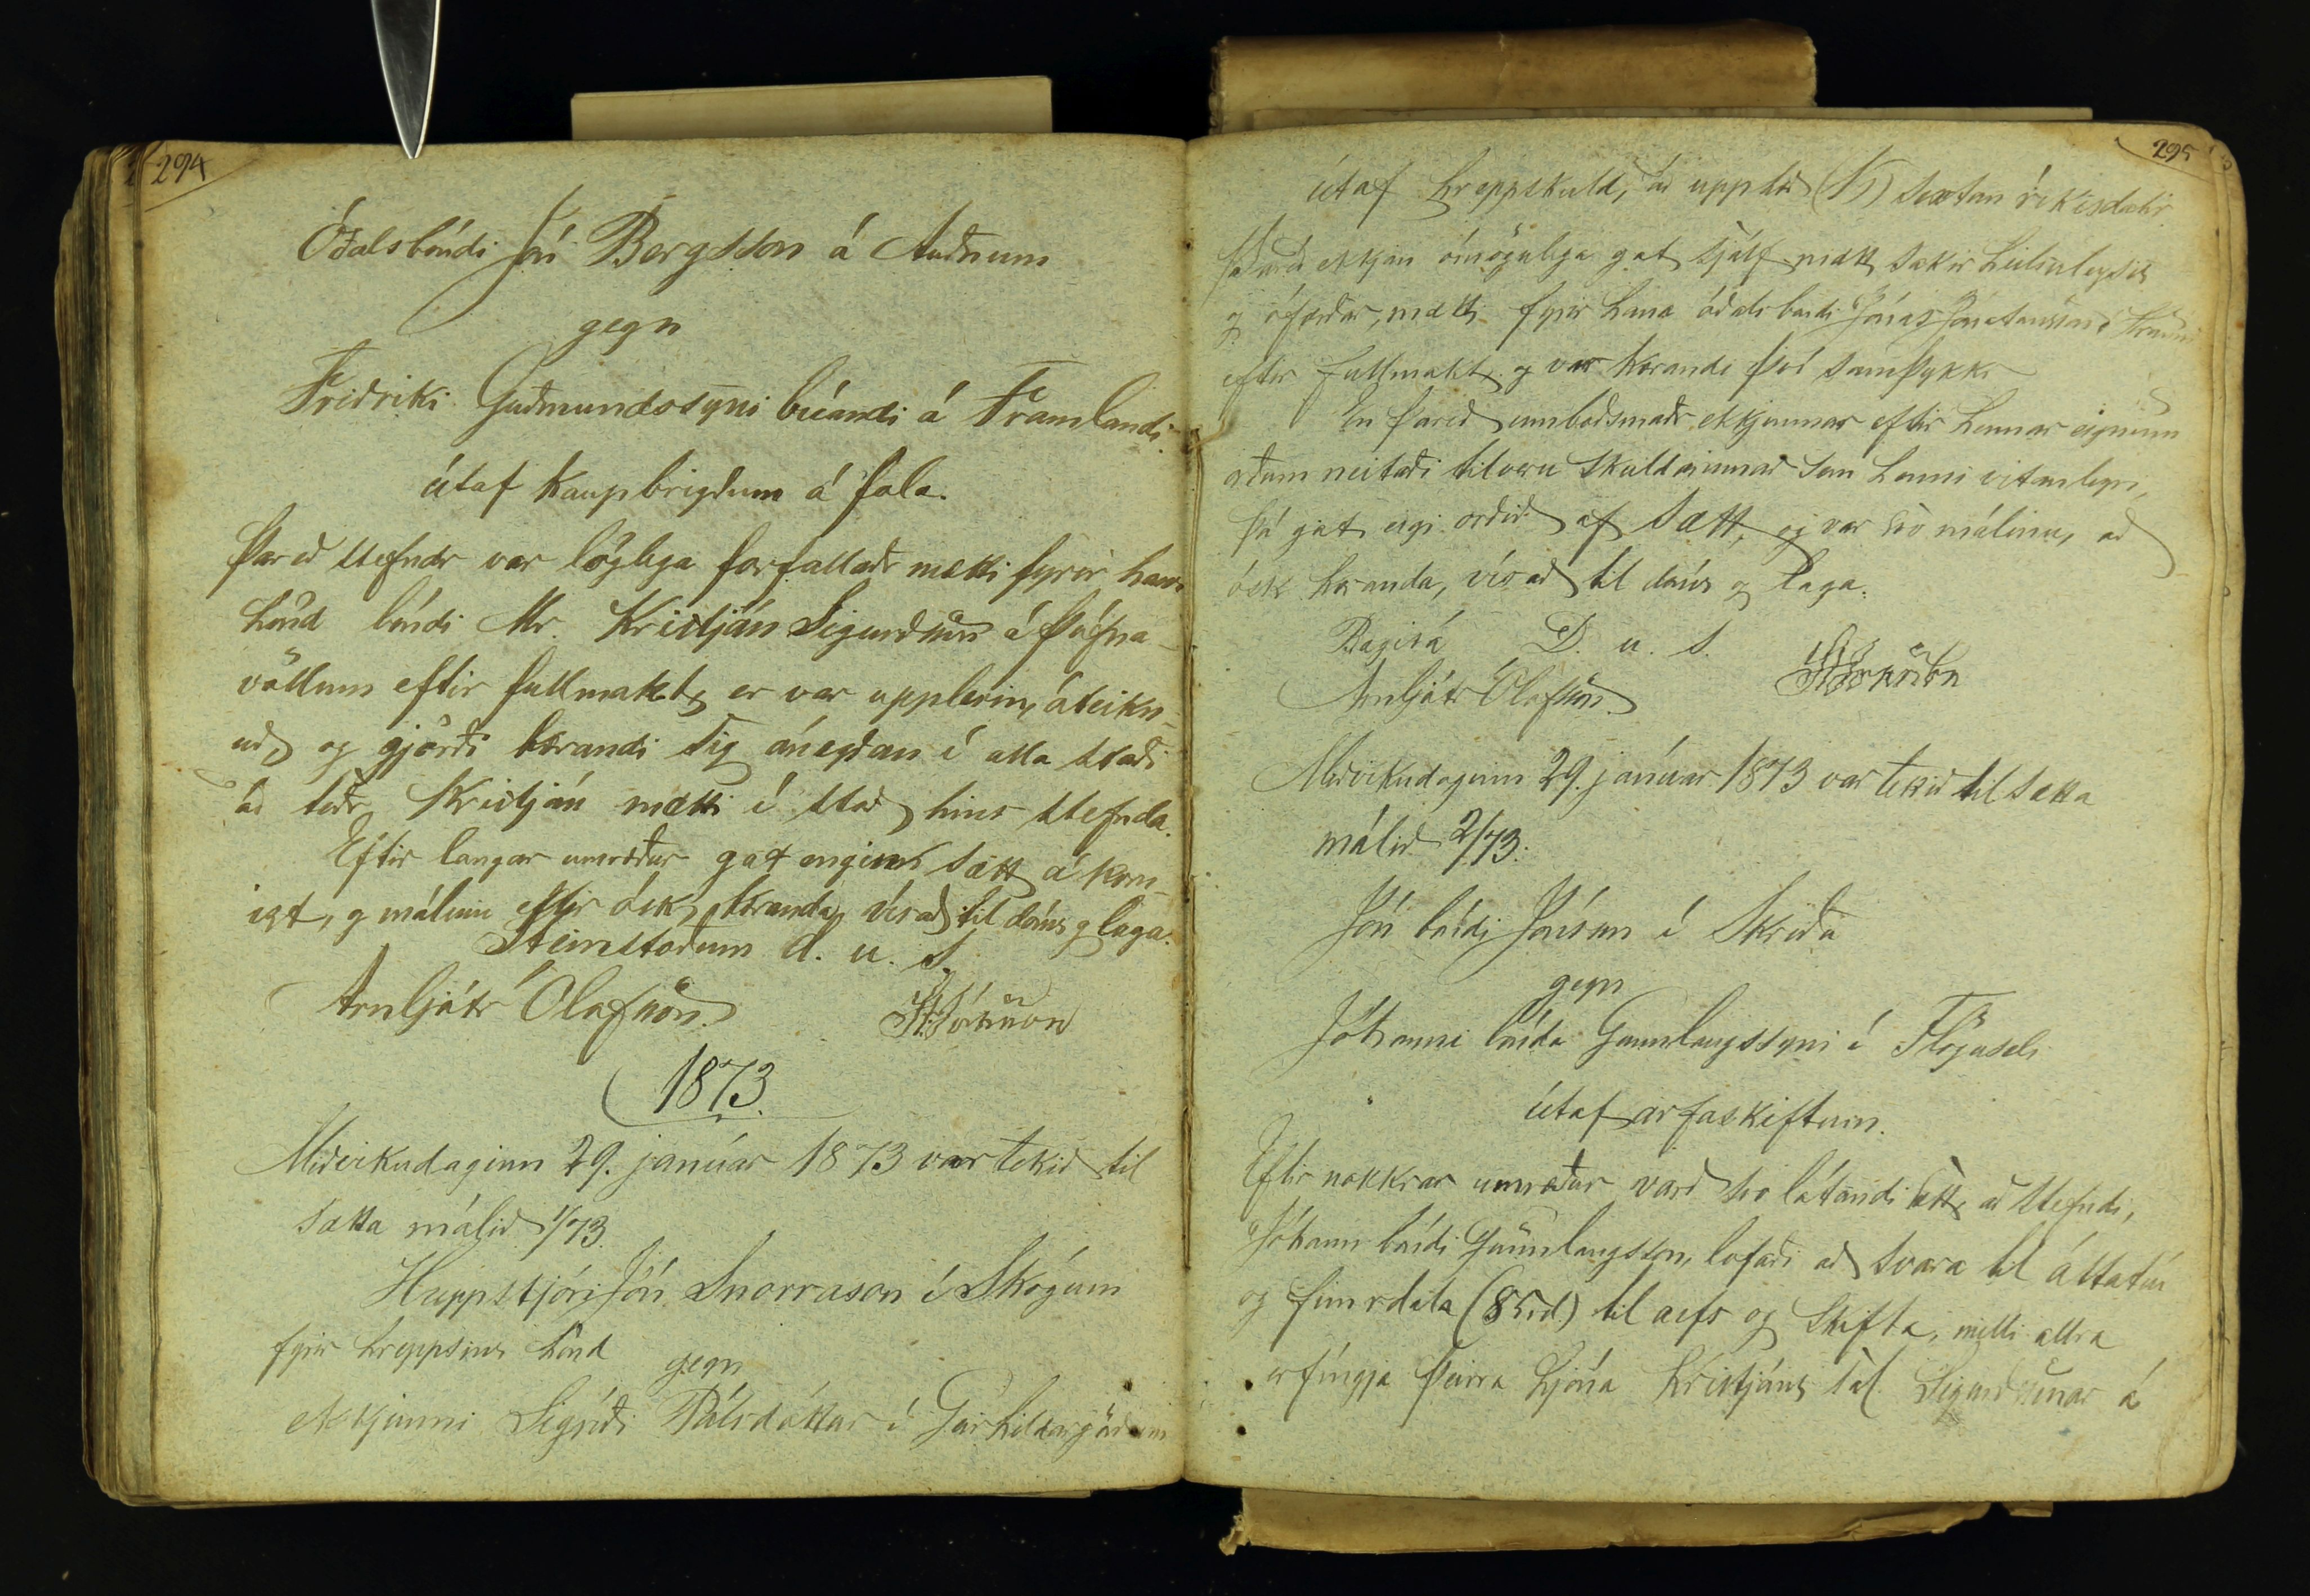 294
Óðalsbóndi Jón Bergsson á Auðnum
gegn
Friðriki Guðmundssyni búandi á Framlandi
útaf kaupbrigðum á fola.
Þareð stefndr var löglega forfallaðr mætti fyrir hans
hönd bóndi Mr. Kristján Sigurðsson á
völlum eftir fullmakt, er var upplesin, áteikn-
uð og gjörði kærandi sig ánægðan í alla staði
að téðr Kristján mætti í stað hins stefnda.
Eftir langar umræður gat engin sætt á kom-
ist, og málinu eftir ósk kæranda vísað til dóms og laga.
Steinstöðum d. u. s.
Arnljótr Ólafsson.
1873.
Miðvikudaginn 29. janúar 1873 var tekið til
sátta málið 1/73.
Hreppstjóri Jón Snorrason í Skógum
fyrir hreppsins hönd
gegn
ekkjunni Sigríði Pálsdóttur í Geirhildargörðum
295
útaf hreppskuld, að upphæð sextán ríkisdalir
Þareð ekkjan ómögulega gat sjálf mætt sakir heilsuleysis
og ófærðar, mætti fyrir hana óðalsbóndi Jónas Jónatansson
eftir fullmakt, og var kærandi því samþykkr
En þareð umboðsmaðr ekkjunnar eftir hennar eiginum
orðum neitaði tilveru skuldarinnar sem henni vitanlegri,
þá gat eigi orðið af sætt, og var svo málinu, að
ósk kæranda, vísað til dóms og laga.
Bægisá D. u. s.
Arnljótr Ólafsson.
Miðvikudaginn 29. janúar 1873 var tekið til sátta
málið 2/73.
Jón bóndi Jónsson í Skriðu
gegn
Jóhanni bónda Gunnlaugssyni í Flöguseli
útaf arfaskiftum.
Eftir nokkrar umræður varð svo látandi sætt, að stefndi,
Jóhann bóndi Gunnlaugsson, lofaði að svara til áttatíu
og fimm rdala (85 rd) til arfs og skifta, milli allra
erfingja þeirra hjóna Kristjáns sál. Sigurðssonar á